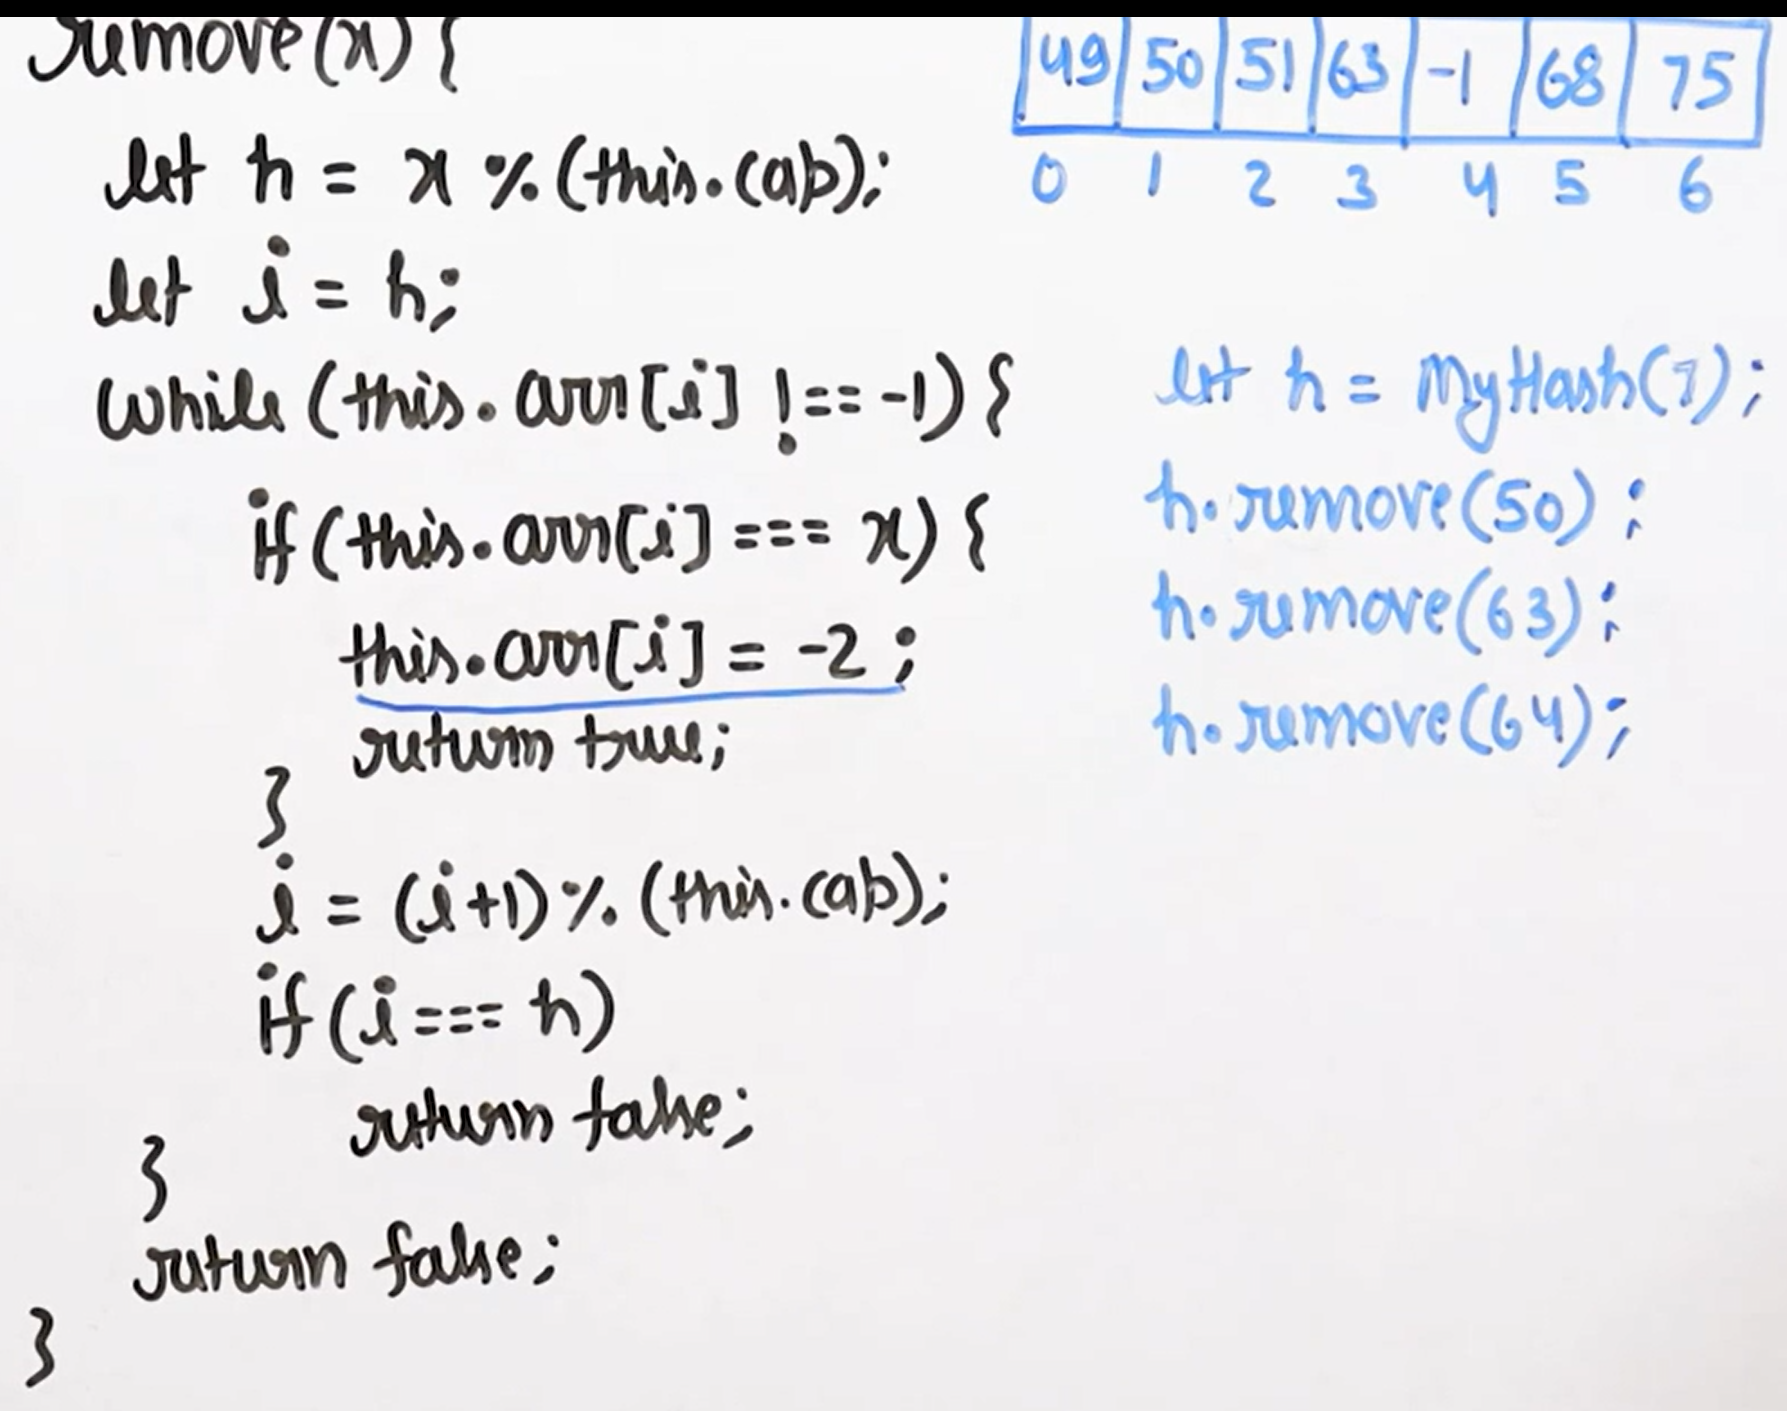 remove(x) {
let h = x % (this.cap);
let i = h;
while (this.arr[i] !== -1) {
if (this.arr[i] === x) {
this.arr[i] = -2;
return true;
}
i = (i+1) % (this.cap);
if (i === h)
return false;
}
return false;
}
49 50 51 63 -1 68 75
0 1 2 3 4 5 6
let h = MyHash(7);
h.remove(50);
h.remove(63);
h.remove(64);